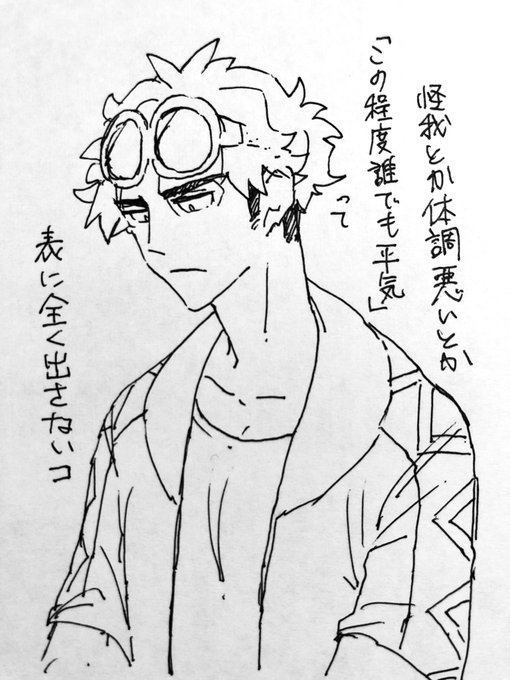 怪我とか体調悪いとか
「この程度誰でも平気」
って
表に全く出さないコ